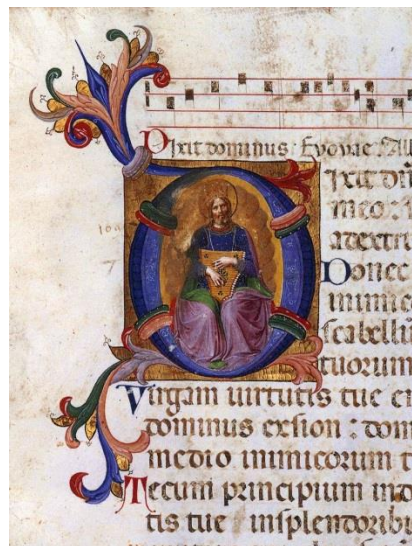 Dixit dominus : Evovae : All
Dixit dn̄
meo :
adextri
Donec
inimic
scabellū
tuorum
Virgam virtutis tue
dominus exsion : dom
medio inimicorum t
Tecum principium ind
tis tue insplendorib